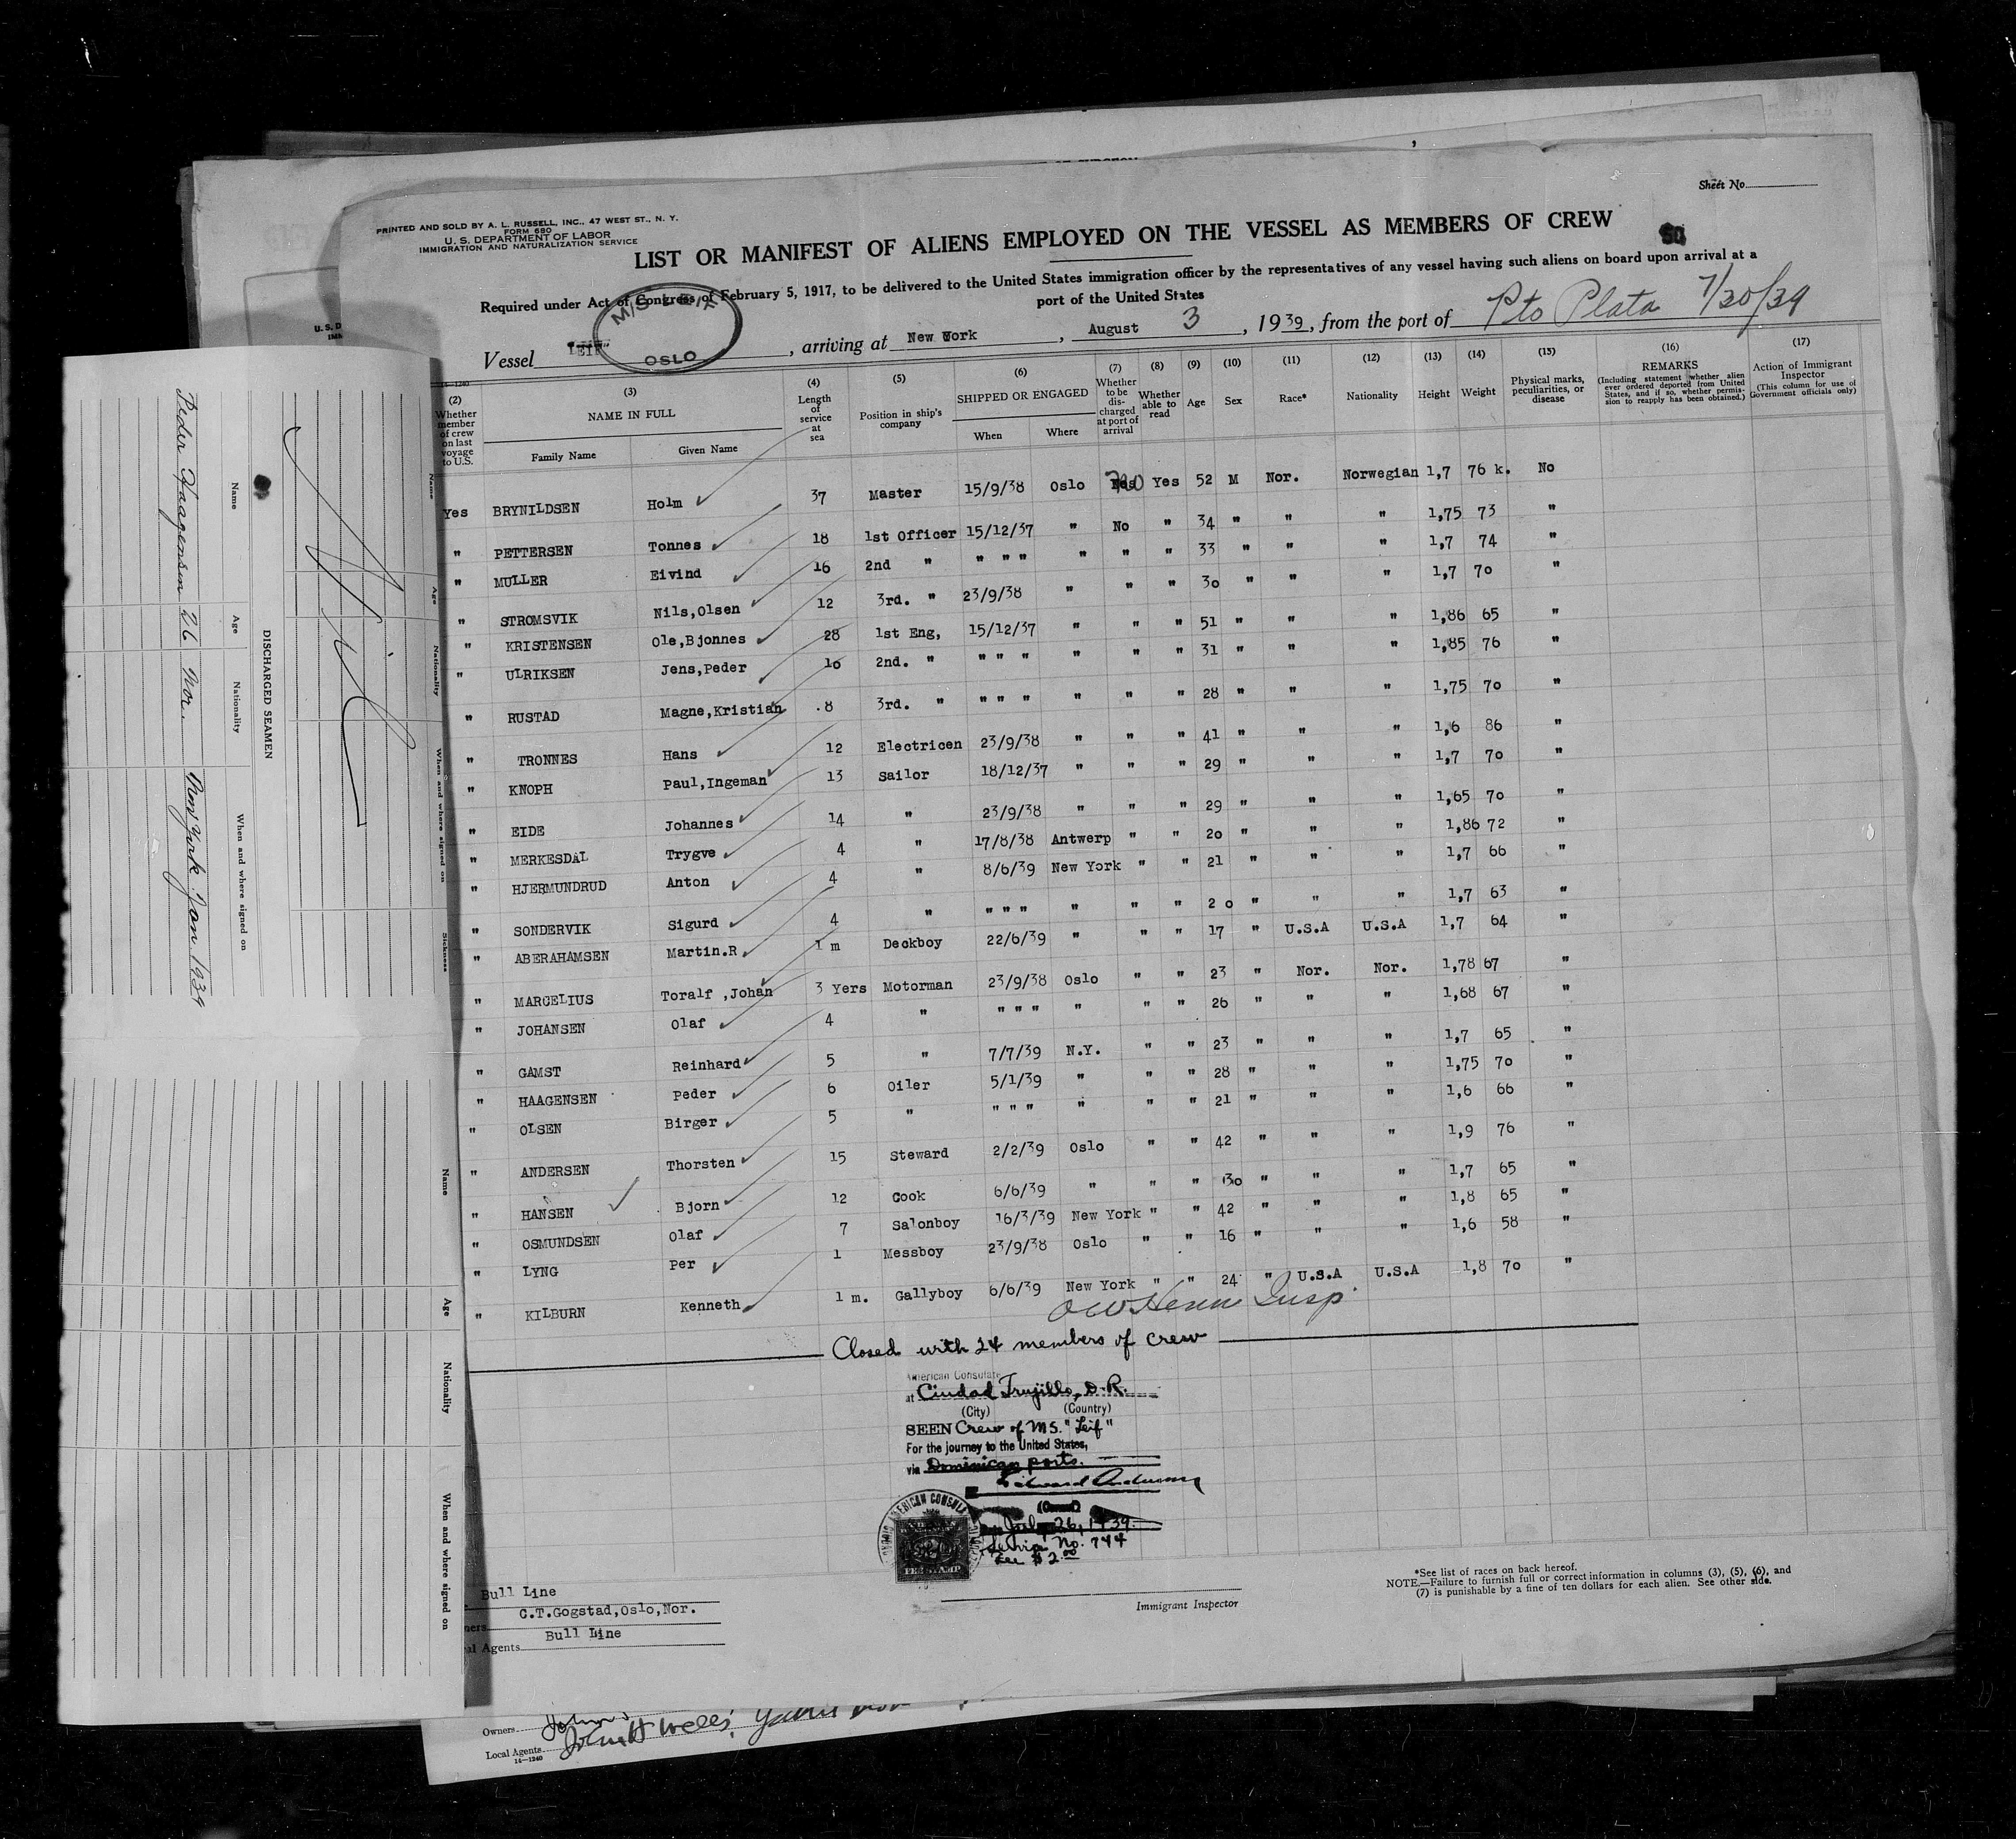 Sheet No.
PRINTED AND SOLD BY A. L. RUSSELL, INC., 47 WEST ST., N. Y.
FORM 680
U. S. DEPARTMENT OF LABOR
IMMIGRATION AND NATURALIZATION SERVICE
LIST OR MANIFEST OF ALIENS EMPLOYED ON THE VESSEL AS MEMBERS OF CREW
Required under Act of Congress of February 5, 1917, to be delivered to the United States immigration officer by the representatives of any vessel having such aliens on board upon arrival at a
port of the United States
Vessel "LEIF" M/S LEIF OSLO, arriving at New York, August 3, 1939, from the port of Pto Plata 7/30/39
(2) (3) (4) (5) (6) (7) (8) (9) (10) (11) (12) (13) (14) (15) (16) (17)
Whether member of crew on last voyage to U.S. NAME IN FULL Family Name Given Name Length of service at sea Position in ship's company SHIPPED OR ENGAGED When Where Whether to be discharged at port of arrival Whether able to read Age Sex Race* Nationality Height Weight Physical marks, peculiarities, or disease REMARKS (Including statement whether alien ever ordered deported from United States, and if so, whether permission to reapply has been obtained.) Action of Immigrant Inspector (This column for use of Government officials only)
Yes BRYNILDSEN Holm 37 Master 15/9/38 Oslo No Yes 52 M Nor. Norwegian 1,7 76 k. No
" PETTERSEN Tonnes 18 1st Officer 15/12/37 " No " 34 " " " 1,75 73 "
" MULLER Eivind 16 2nd " " " " " " " 33 " " " 1,7 74 "
" STROMSVIK Nils,Olsen 12 3rd. " 23/9/38 " " " 30 " " " 1,7 70 "
" KRISTENSEN Ole,Bjonnes 28 1st Eng, 15/12/37 " " " 51 " " " 1,86 65 "
" ULRIKSEN Jens,Peder 10 2nd. " " " " " " " 31 " " " 1,85 76 "
" RUSTAD Magne,Kristian .8 3rd. " " " " " " " 28 " " " 1,75 70 "
" TRONNES Hans 12 Electricen 23/9/38 " " " 41 " " " 1,6 86 "
" KNOPH Paul,Ingeman 13 Sailor 18/12/37 " " " 29 " " " 1,7 70 "
" EIDE Johannes 14 " 23/9/38 " " " 29 " " " 1,65 70 "
" MERKESDAL Trygve 4 " 17/8/38 Antwerp " " 20 " " " 1,86 72 "
" HJERMUNDRUD Anton 4 " 8/6/39 New York " " 21 " " " 1,7 66 "
" SONDERVIK Sigurd 4 " " " " " " " 20 " " " 1,7 63 "
" ABERAHAMSEN Martin.R 1 m Deckboy 22/6/39 " " " 17 " U.S.A U.S.A 1,7 64 "
" MARCELIUS Toralf ,Johan 3 Yers Motorman 23/9/38 Oslo " " 23 " Nor. Nor. 1,78 67 "
" JOHANSEN Olaf 4 " " " " " " " 26 " " " 1,68 67 "
" GAMST Reinhard 5 " 7/7/39 N.Y. " " 23 " " " 1,7 65 "
" HAAGENSEN Peder 6 Oiler 5/1/39 " " " 28 " " " 1,75 70 "
" OLSEN Birger 5 " " " " " " " 21 " " " 1,6 66 "
" ANDERSEN Thorsten 15 Steward 2/2/39 Oslo " " 42 " " " 1,9 76 "
" HANSEN Bjorn 12 Cook 6/6/39 " " " 30 " " " 1,7 65 "
" OSMUNDSEN Olaf 7 Salonboy 16/3/39 New York " " 42 " " " 1,8 65 "
" LYNG Per 1 Messboy 23/9/38 Oslo " " 16 " " " 1,6 58 "
" KILBURN Kenneth 1 m. Gallyboy 6/6/39 New York " " 24 " U.S.A U.S.A 1,8 70 "
Insp.
Closed with 24 members of crew
American Consulate
at Ciudad Trujillo, D.R.
(City) (Country)
SEEN Crew of MS. "Leif"
For the journey to the United States,
via Dominican ports.
Edward Anderson
(Consul)
July 26, 1939.
Service No. 744
Fee $2.00
AMERICAN CONSULA
FEE STAMP
Immigrant Inspector
*See list of races on back hereof.
NOTE.—Failure to furnish full or correct information in columns (3), (5), (6), and
(7) is punishable by a fine of ten dollars for each alien. See other side.
Bull Line
C.T.Gogstad,Oslo,Nor.
Agents Bull Line
Owners
Local Agents John H Wells
16—1240
DISCHARGED SEAMEN
Name Age Nationality When and where signed on
Peder Haagensen 26 Nor. New York Jan 1939
Name Age Nationality When and where signed on Sickness
Name Age Nationality When and where signed on